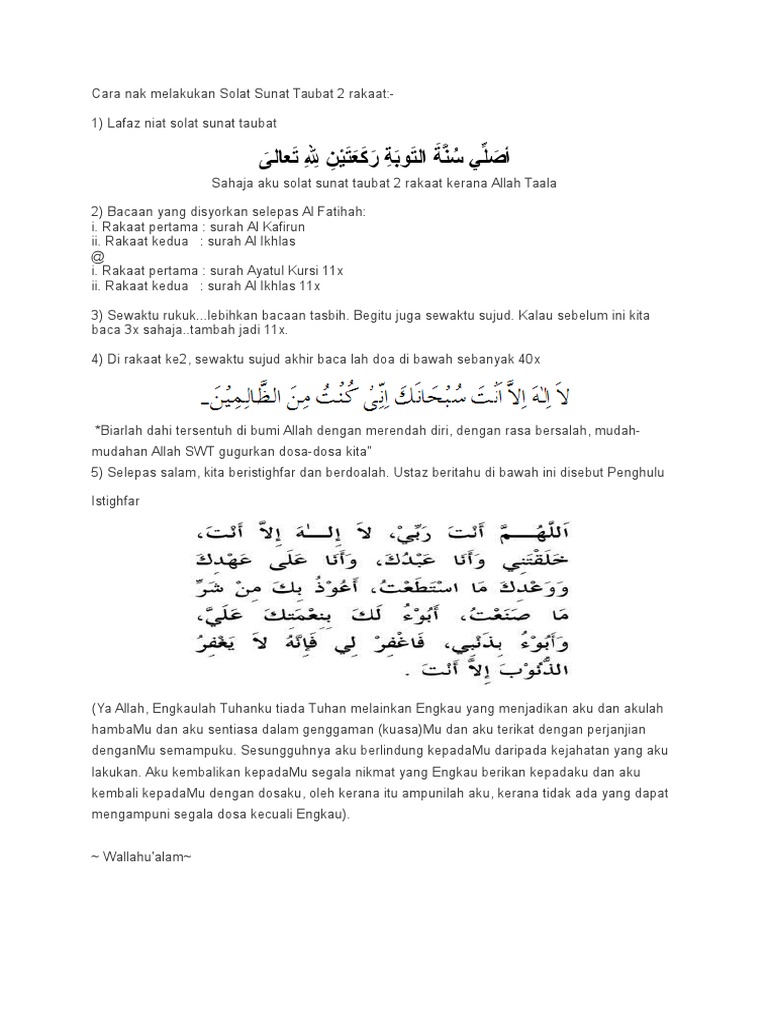 Cara nak melakukan Solat Sunat Taubat 2 rakaat:-
1) Lafaz niat solat sunat taubat
أُصَلِّي سُنَّةَ التَوبَةِ رَكعَتَيْنِ لِلهِ تَعالىَ
Sahaja aku solat sunat taubat 2 rakaat kerana Allah Taala
2) Bacaan yang disyorkan selepas Al Fatihah:
i. Rakaat pertama : surah Al Kafirun
ii. Rakaat kedua   : surah Al Ikhlas
@
i. Rakaat pertama : surah Ayatul Kursi 11x
ii. Rakaat kedua   : surah Al Ikhlas 11x
3) Sewaktu rukuk...lebihkan bacaan tasbih. Begitu juga sewaktu sujud. Kalau sebelum ini kita
baca 3x sahaja..tambah jadi 11x.
4) Di rakaat ke2, sewaktu sujud akhir baca lah doa di bawah sebanyak 40x
لاَ اِلٰهَ اِلاَّ اَنْتَ سُبْحَانَكَ اِنِّىْ كُنْتُ مِنَ الظَّالِمِيْنَ-
*Biarlah dahi tersentuh di bumi Allah dengan merendah diri, dengan rasa bersalah, mudah-
mudahan Allah SWT gugurkan dosa-dosa kita"
5) Selepas salam, kita beristighfar dan berdoalah. Ustaz beritahu di bawah ini disebut Penghulu
Istighfar
اَللَّهُـــمَّ أَنْتَ رَبِّيْ، لاَ إِلـــٰـهَ إِلاَّ أَنْتَ،
خَلَقْتَنِي وَأَنَا عَبْدُكَ، وَأَنَا عَلَى عَهْدِكَ
وَوَعْدِكَ مَا اسْتَطَعْتُ، أَعُوْذُ بِكَ مِنْ شَرِّ
مَا صَنَعْتُ، أَبُوْءُ لَكَ بِنِعْمَتِكَ عَلَيَّ،
وَأَبُوْءُ بِذَنْبِي، فَاغْفِرْ لِي فَإِنَّهُ لاَ يَغْفِرُ
الذُّنُوْبَ إِلاَّ أَنْتَ .
(Ya Allah, Engkaulah Tuhanku tiada Tuhan melainkan Engkau yang menjadikan aku dan akulah
hambaMu dan aku sentiasa dalam genggaman (kuasa)Mu dan aku terikat dengan perjanjian
denganMu semampuku. Sesungguhnya aku berlindung kepadaMu daripada kejahatan yang aku
lakukan. Aku kembalikan kepadaMu segala nikmat yang Engkau berikan kepadaku dan aku
kembali kepadaMu dengan dosaku, oleh kerana itu ampunilah aku, kerana tidak ada yang dapat
mengampuni segala dosa kecuali Engkau).
~ Wallahu'alam~